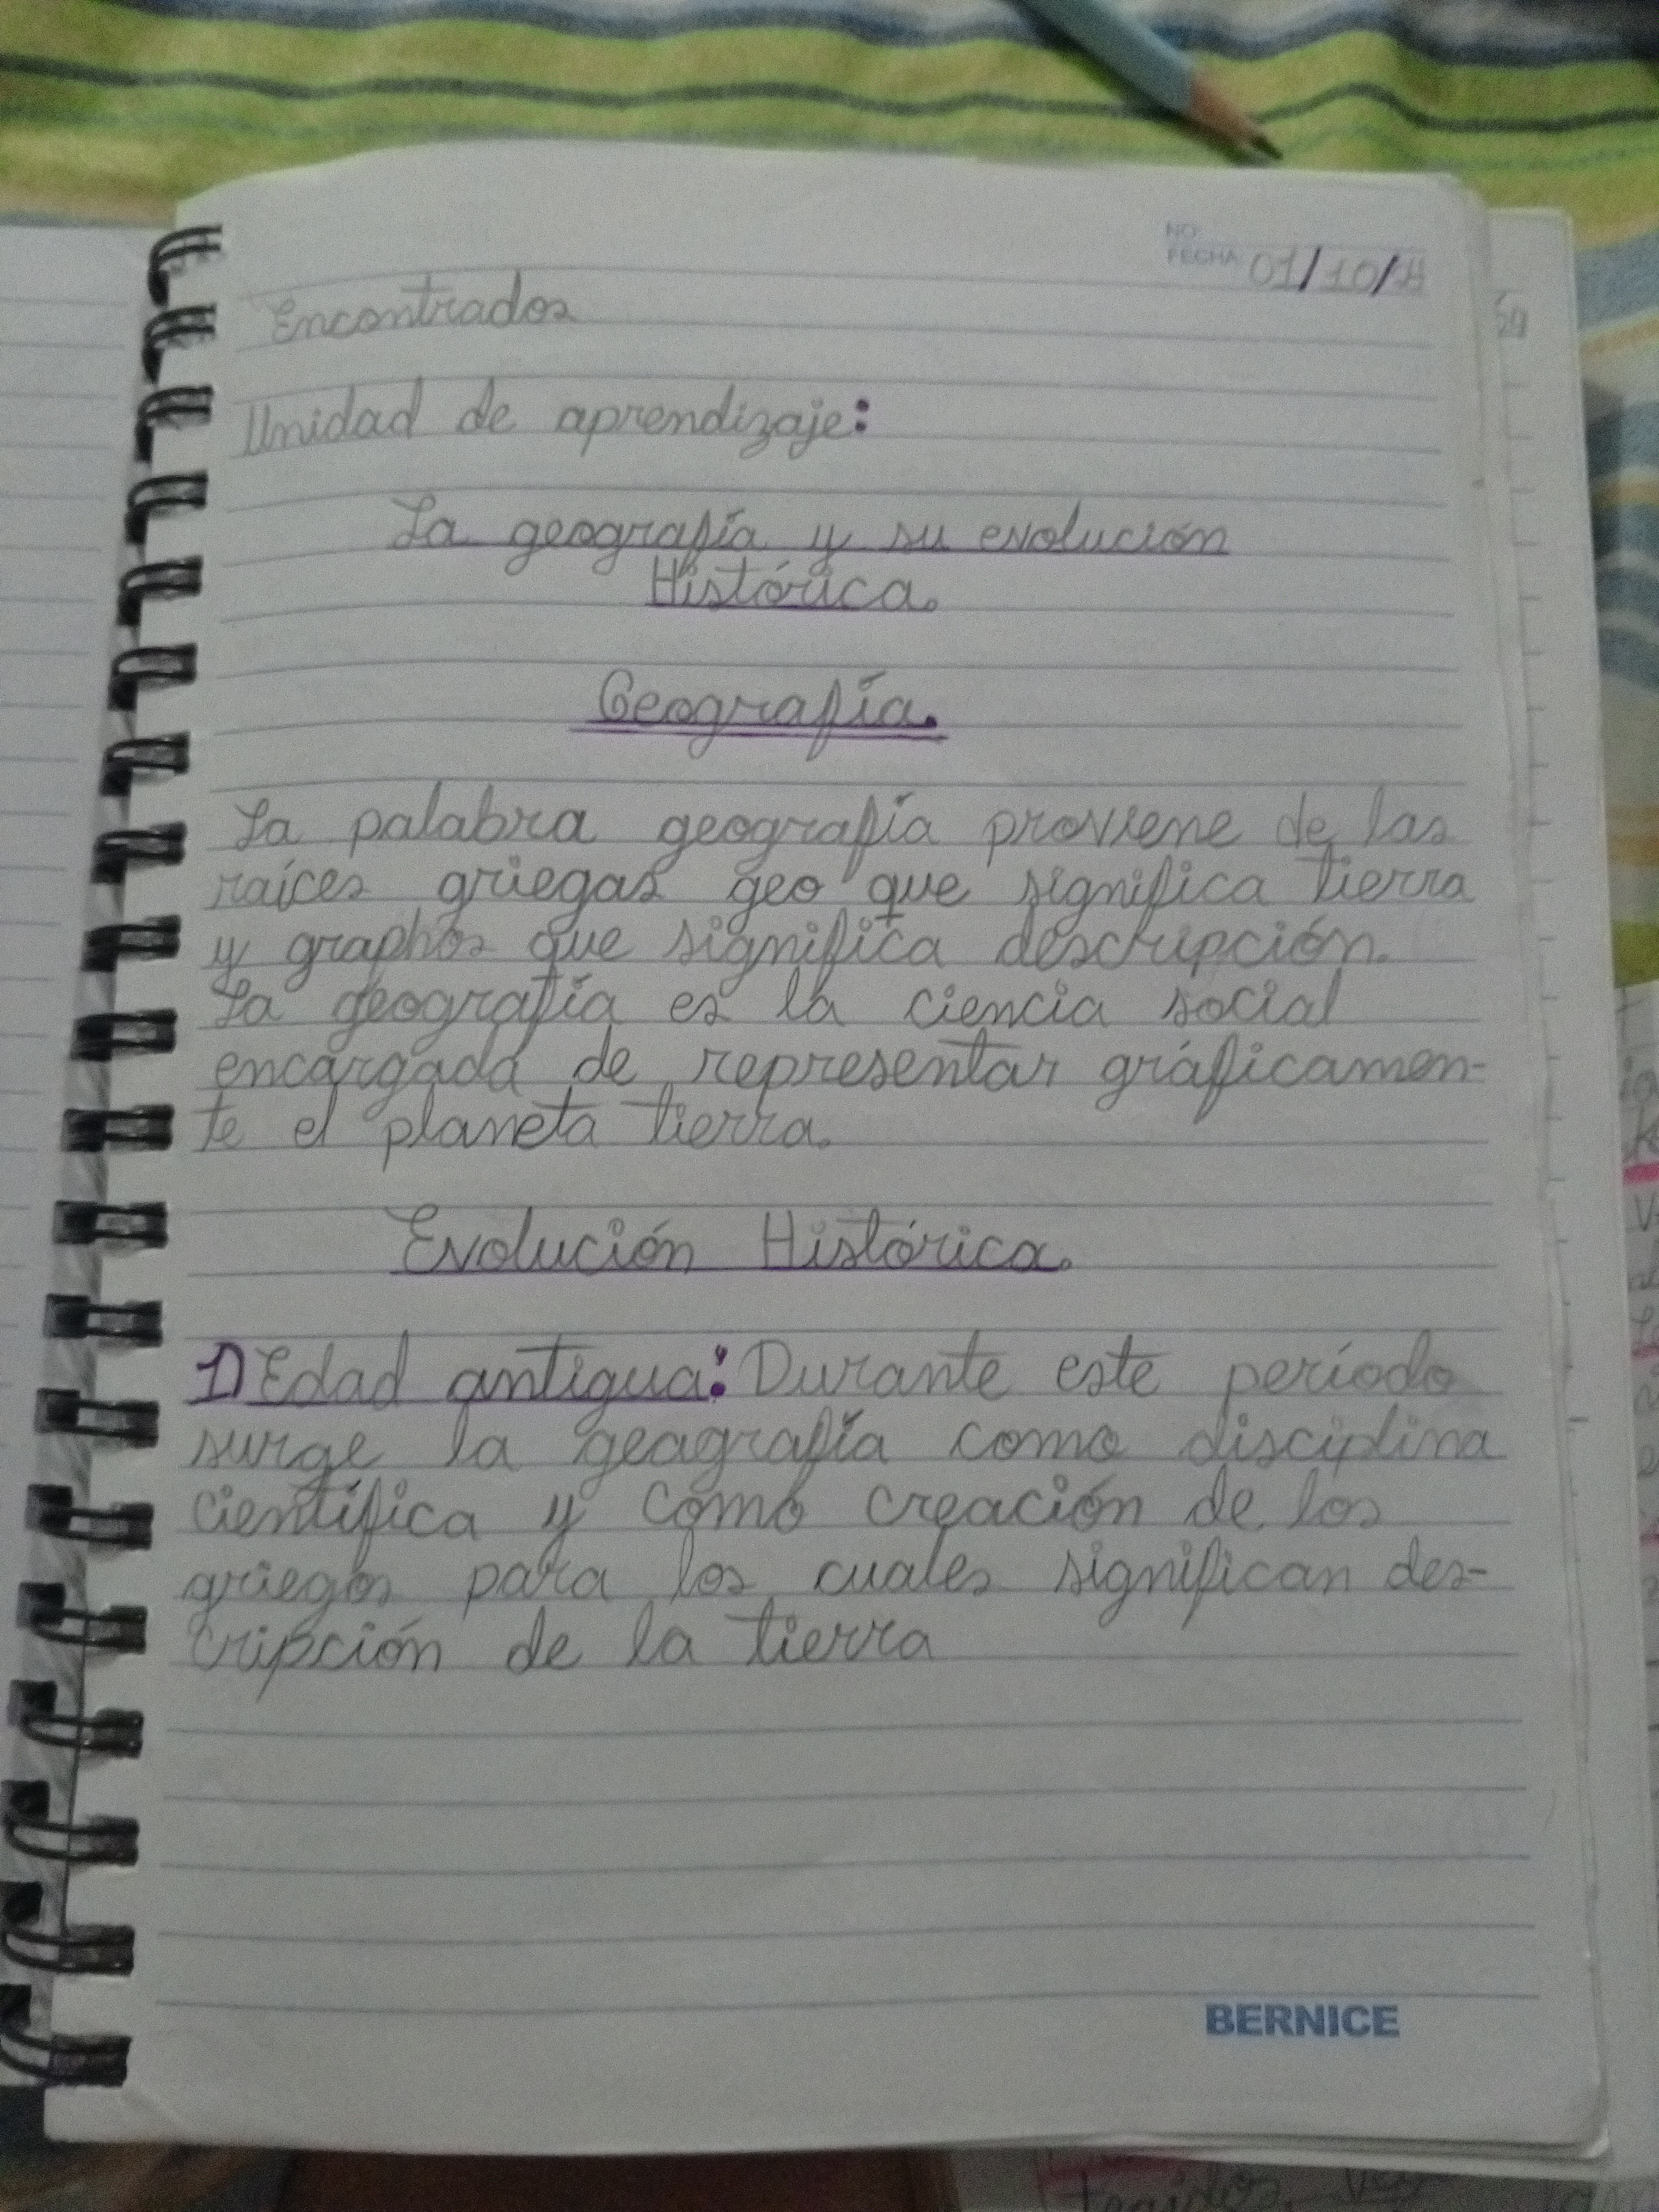 NO
FECHA 01/10/
Encontrados
Unidad de aprendizaje:
La geografía y su evolución
Histórica.
Geografía.
La palabra geografía proviene de las
raíces griegas geo que significa tierra
y graphos que significa descripción.
La geografía es la ciencia social
encargada de representar gráficamen-
te el planeta tierra.
Evolución Histórica.
1) Edad antigua: Durante este período
surge la geagrafía como disciplina
científica y como creación de los
griegos para los cuales significan des-
cripción de la tierra
BERNICE